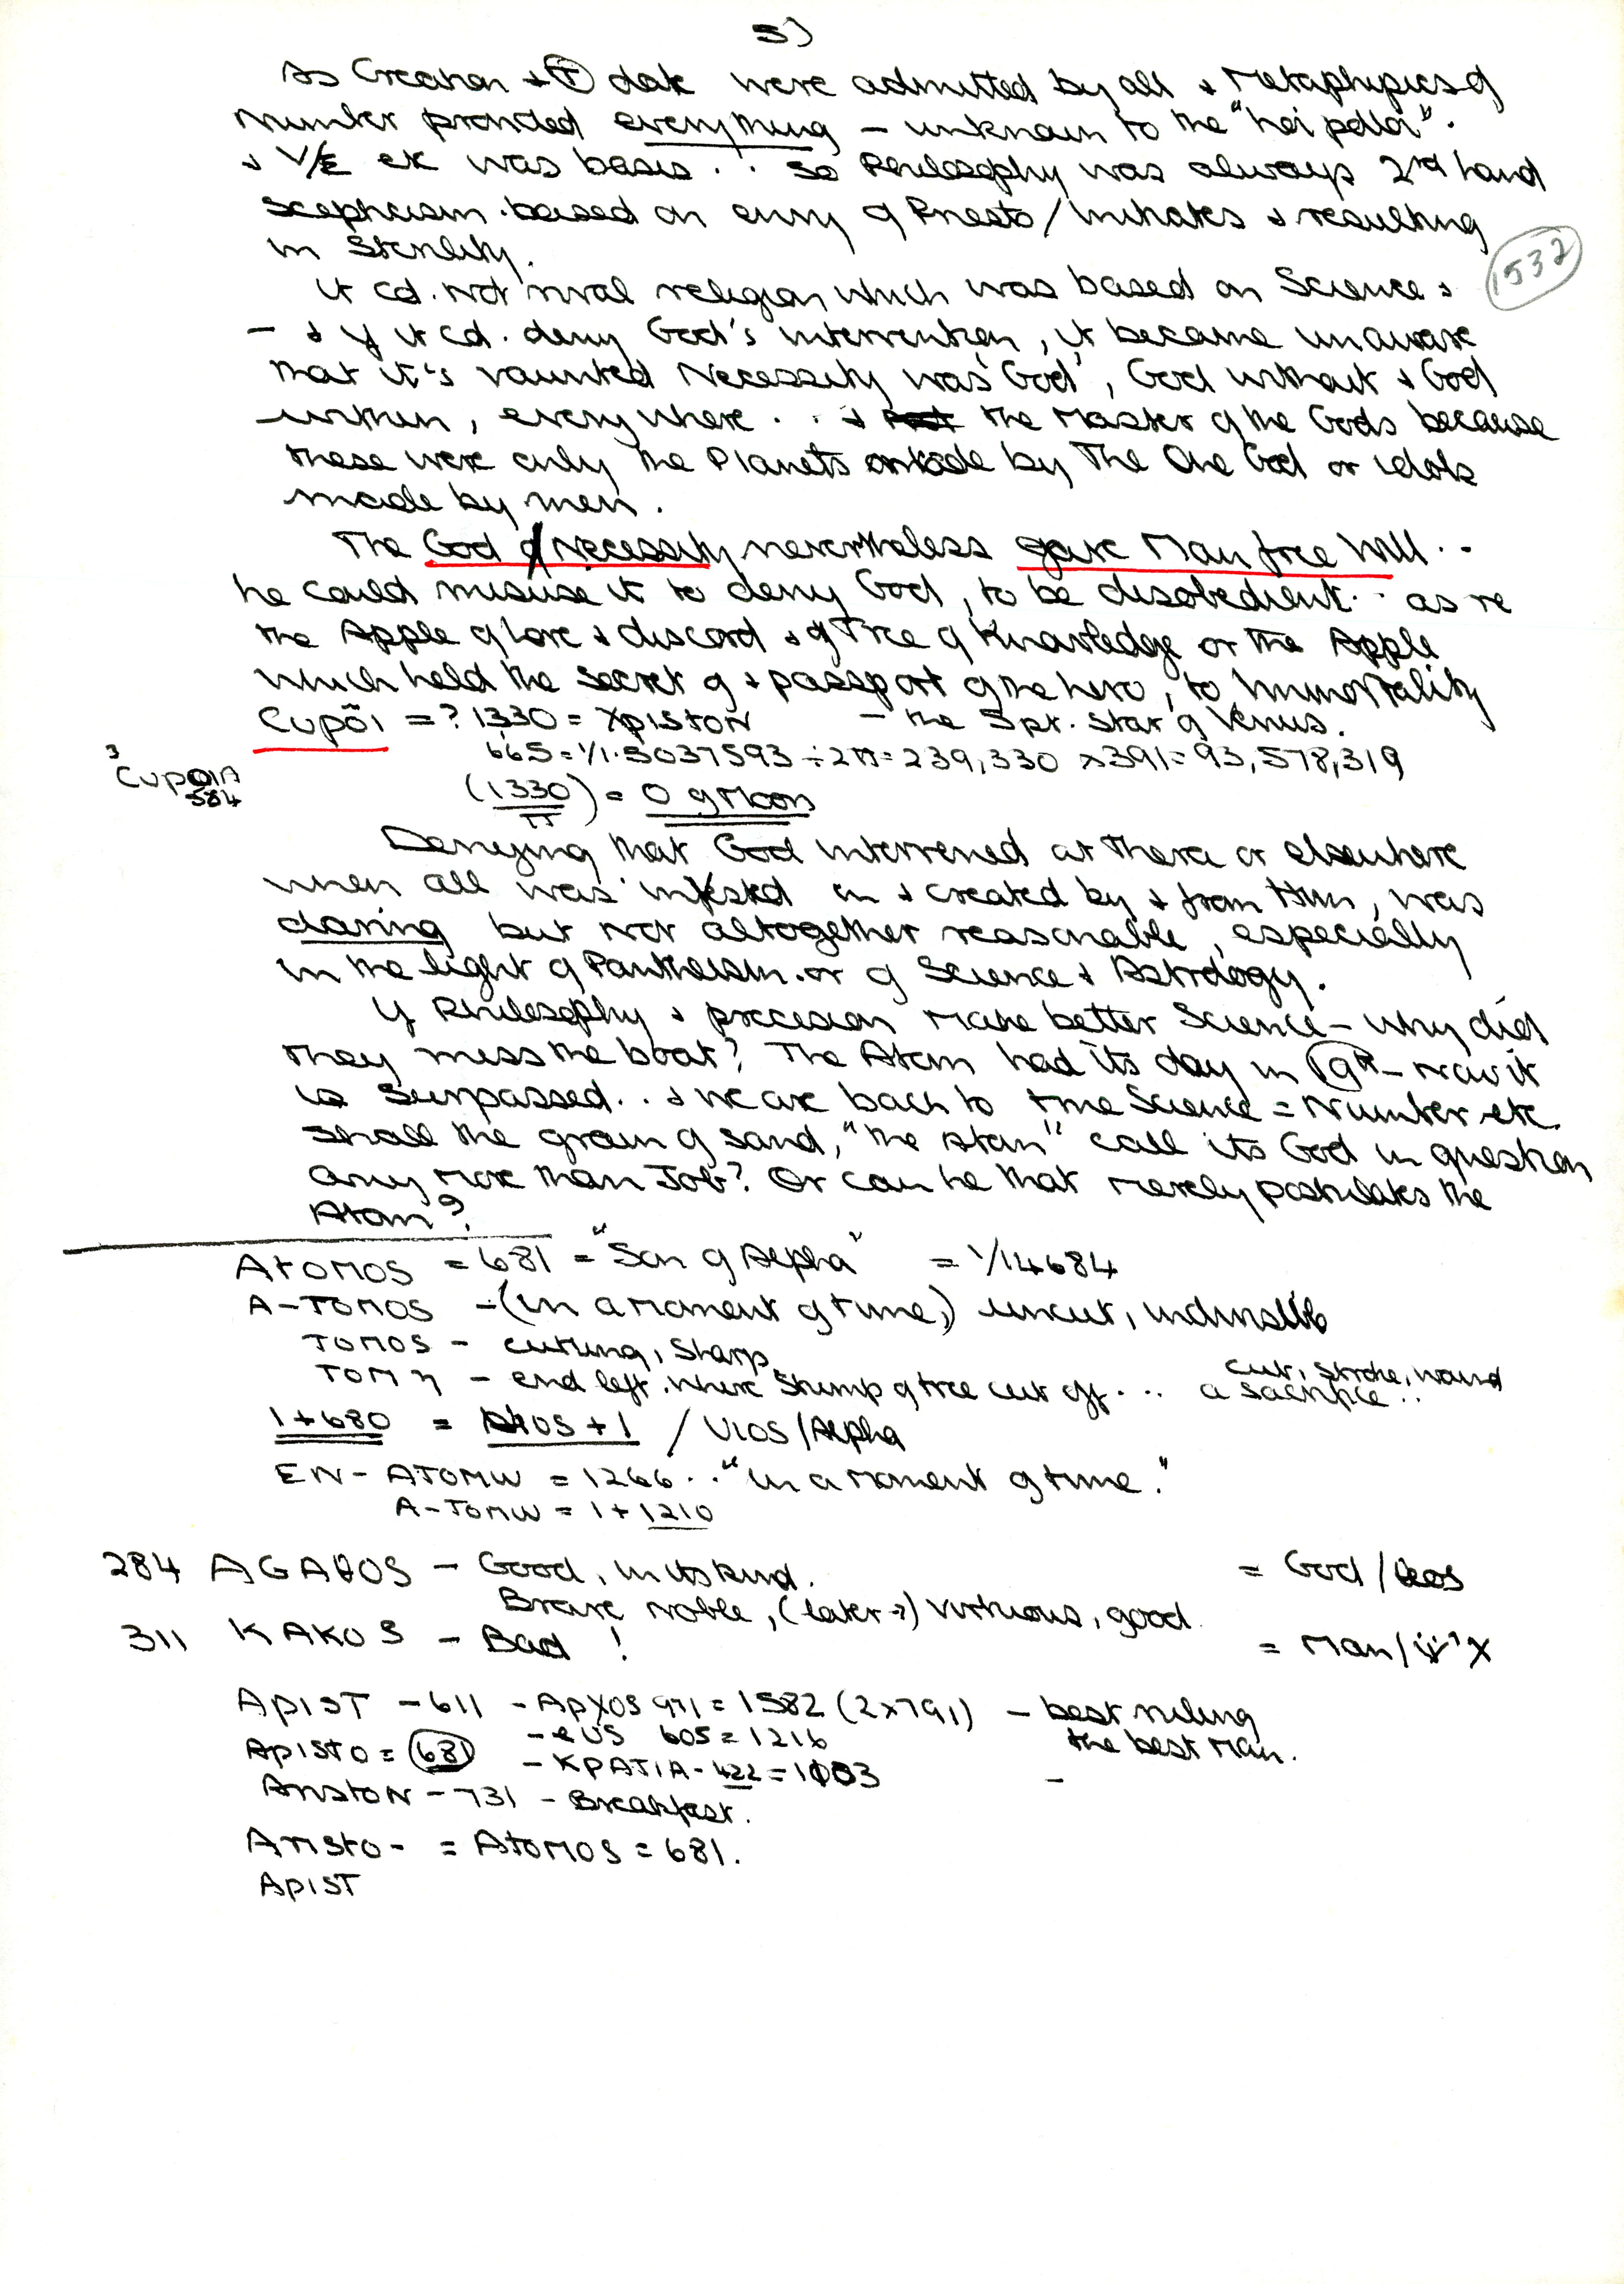 5)
As Creation + (T) date were admitted by all + Metaphysics of
Number provided everything – unknown to the "hoi polloi".
+ V/E ek was basis . . so Philosophy was always 2nd hand
scepticism . based on envy of Priests / initiates + resulting
in Sterility.
1532
it cd. not rival religion which was based on Science +
– + if it cd. deny God's intervention, it became unaware
that it's vaunted Necessity was 'God', God without + God
within, everywhere . . + the Master of the Gods because
these were only the Planets made by The One God or idols
made by men.
The God of Necessity nevertheless gave Man free Will . .
he could misuse it to deny God, to be disobedient . . as re
the Apple of love + discord + of Tree of Knowledge or the Apple
which held the secret of + passport of the hero, to Immortality
Cupôi = ? 1330 = Xpiston – the 5pt. Star of Venus.
665 = 1/1.5037593 ÷ 2π = 239,330 x 391 = 93,578,319
3
CUPOIA
584
(1330/π) = O of Moon
Denying that God intervened at Thera or elsewhere
when all was 'infested' in + created by + from Him, was
daring but not altogether reasonable, especially
in the light of Pantheism . or of Science + Astrology.
If Philosophy + precision make better Science – why did
they miss the boat? The Atom had its day in 19th – now it
is surpassed . . + we are back to true Science = Number etc.
Shall the grain of sand, "the Atom" call its God in question
any more than Job? Or can he that merely postulates the
Atom?
ATOMOS = 681 = "Son of Alpha" = 1/14684
A-TOMOS – (in a moment of time,) uncut, indivisible
TOMOS – cutting, sharp,
TOMη – end left . where stump of tree cut off . . . cut, stroke, wound
a sacrifice . .
1 + 680 = + 1 / VIOS / Alpha
EN - ATOMW = 1266 . . "in a moment of time."
A-TOMW = 1 + 1210
284 AGAθOS – Good, in its kind. = God /
Brave noble, (later →) virtuous, good.
311 KAKOS – Bad ! = Man /
ApIST – 611 – ApXOS 971 = 1582 (2x791) – best ruling
– eUS 605 = 1216 the best man.
ApISTO = 681 – KPATIA - 422 = 1003 –
AristoN – 731 – Breakfast.
Aristo - = ATOMOS = 681.
ApIST